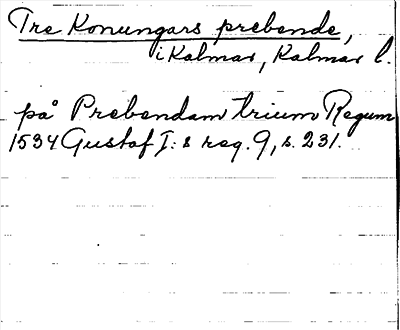 Tre Konungars prebende,
i Kalmar, Kalmar l.
på Prebendam trium Regum
1534 Gustaf I:s reg. 9, s. 231.